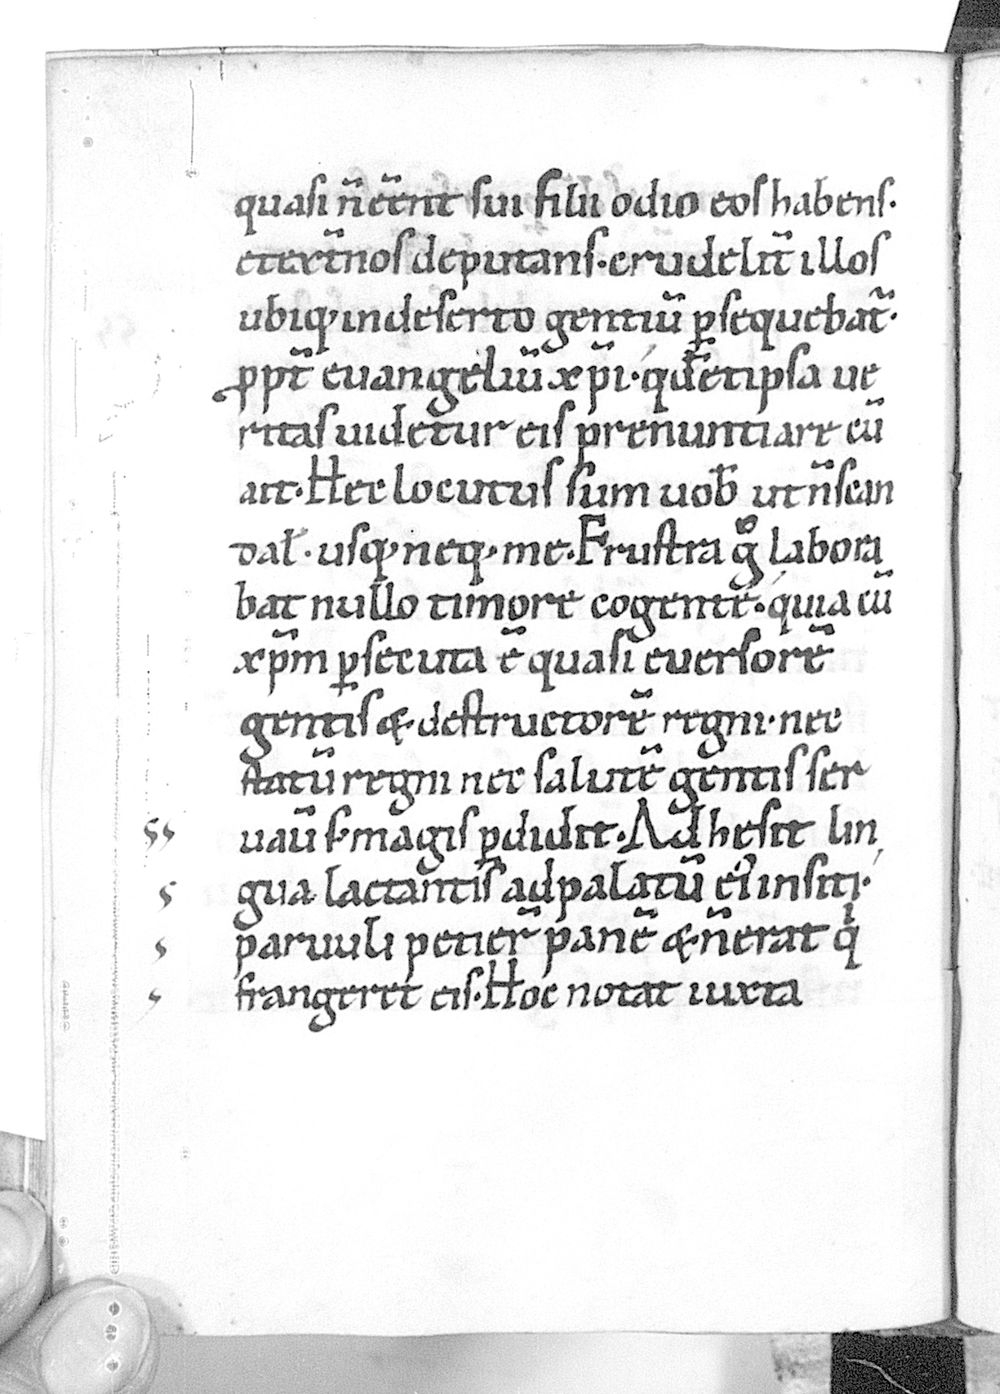 quasi n̄ eēnt sui filii odio eos habens·
et ext̄nos deputans· crudelit̄ illos
ubiq; in deserto gentiū ꝑsequebat̄·
ꝓpt̄ euangeliū xp̄i· qđ et ipsa ue
ritas uidetur eis prenuntiare cū
ait· Hec locutus sum uob̄ ut n̄ scan
dal̄· usq; neq; me· Frustra gͦ labora
bat nullo timore cogente· quia cū
xp̄m ꝑsecuta ē quasi euersorē
gentis & destructorē regni· nec
statū regni nec salutē gentis ser
uauͥ s; magis ꝑdidit· Adhesit lin
gua lactantis ad palatū eiꝰ in siti·
paruuli petier̄ panē & n̄ erat qͥ
frangeret eis· Hoc notat iuxta